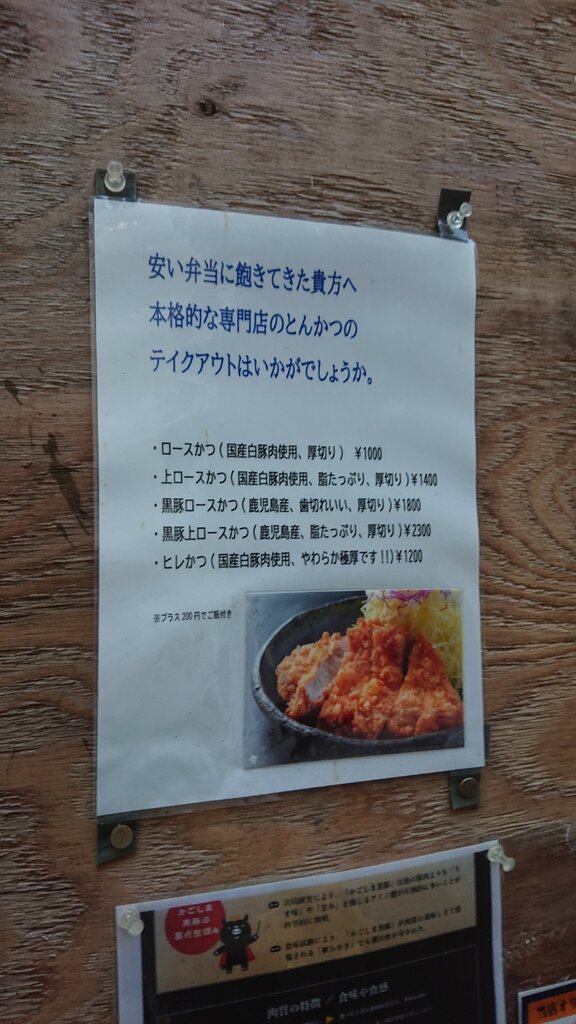 安い弁当に飽きてきた貴方へ
本格的な専門店のとんかつの
テイクアウトはいかがでしょうか。
・ロースかつ(国産白豚肉使用、厚切り) ¥1000
・上ロースかつ(国産白豚肉使用、脂たっぷり、厚切り)¥1400
・黒豚ロースかつ(鹿児島産、歯切れいい、厚切り)¥1800
・黒豚上ロースかつ(鹿児島産、脂たっぷり、厚切り)¥2300
・ヒレかつ(国産白豚肉使用、やわらか極厚です!!)¥1200
※プラス200円でご飯付き
かごしま
黒豚の
要点整理
共同研究により、「かごしま黒豚」
科学的に判明。
食味試験により、「かごしま黒豚」が
肉質の特徴/食味や食感